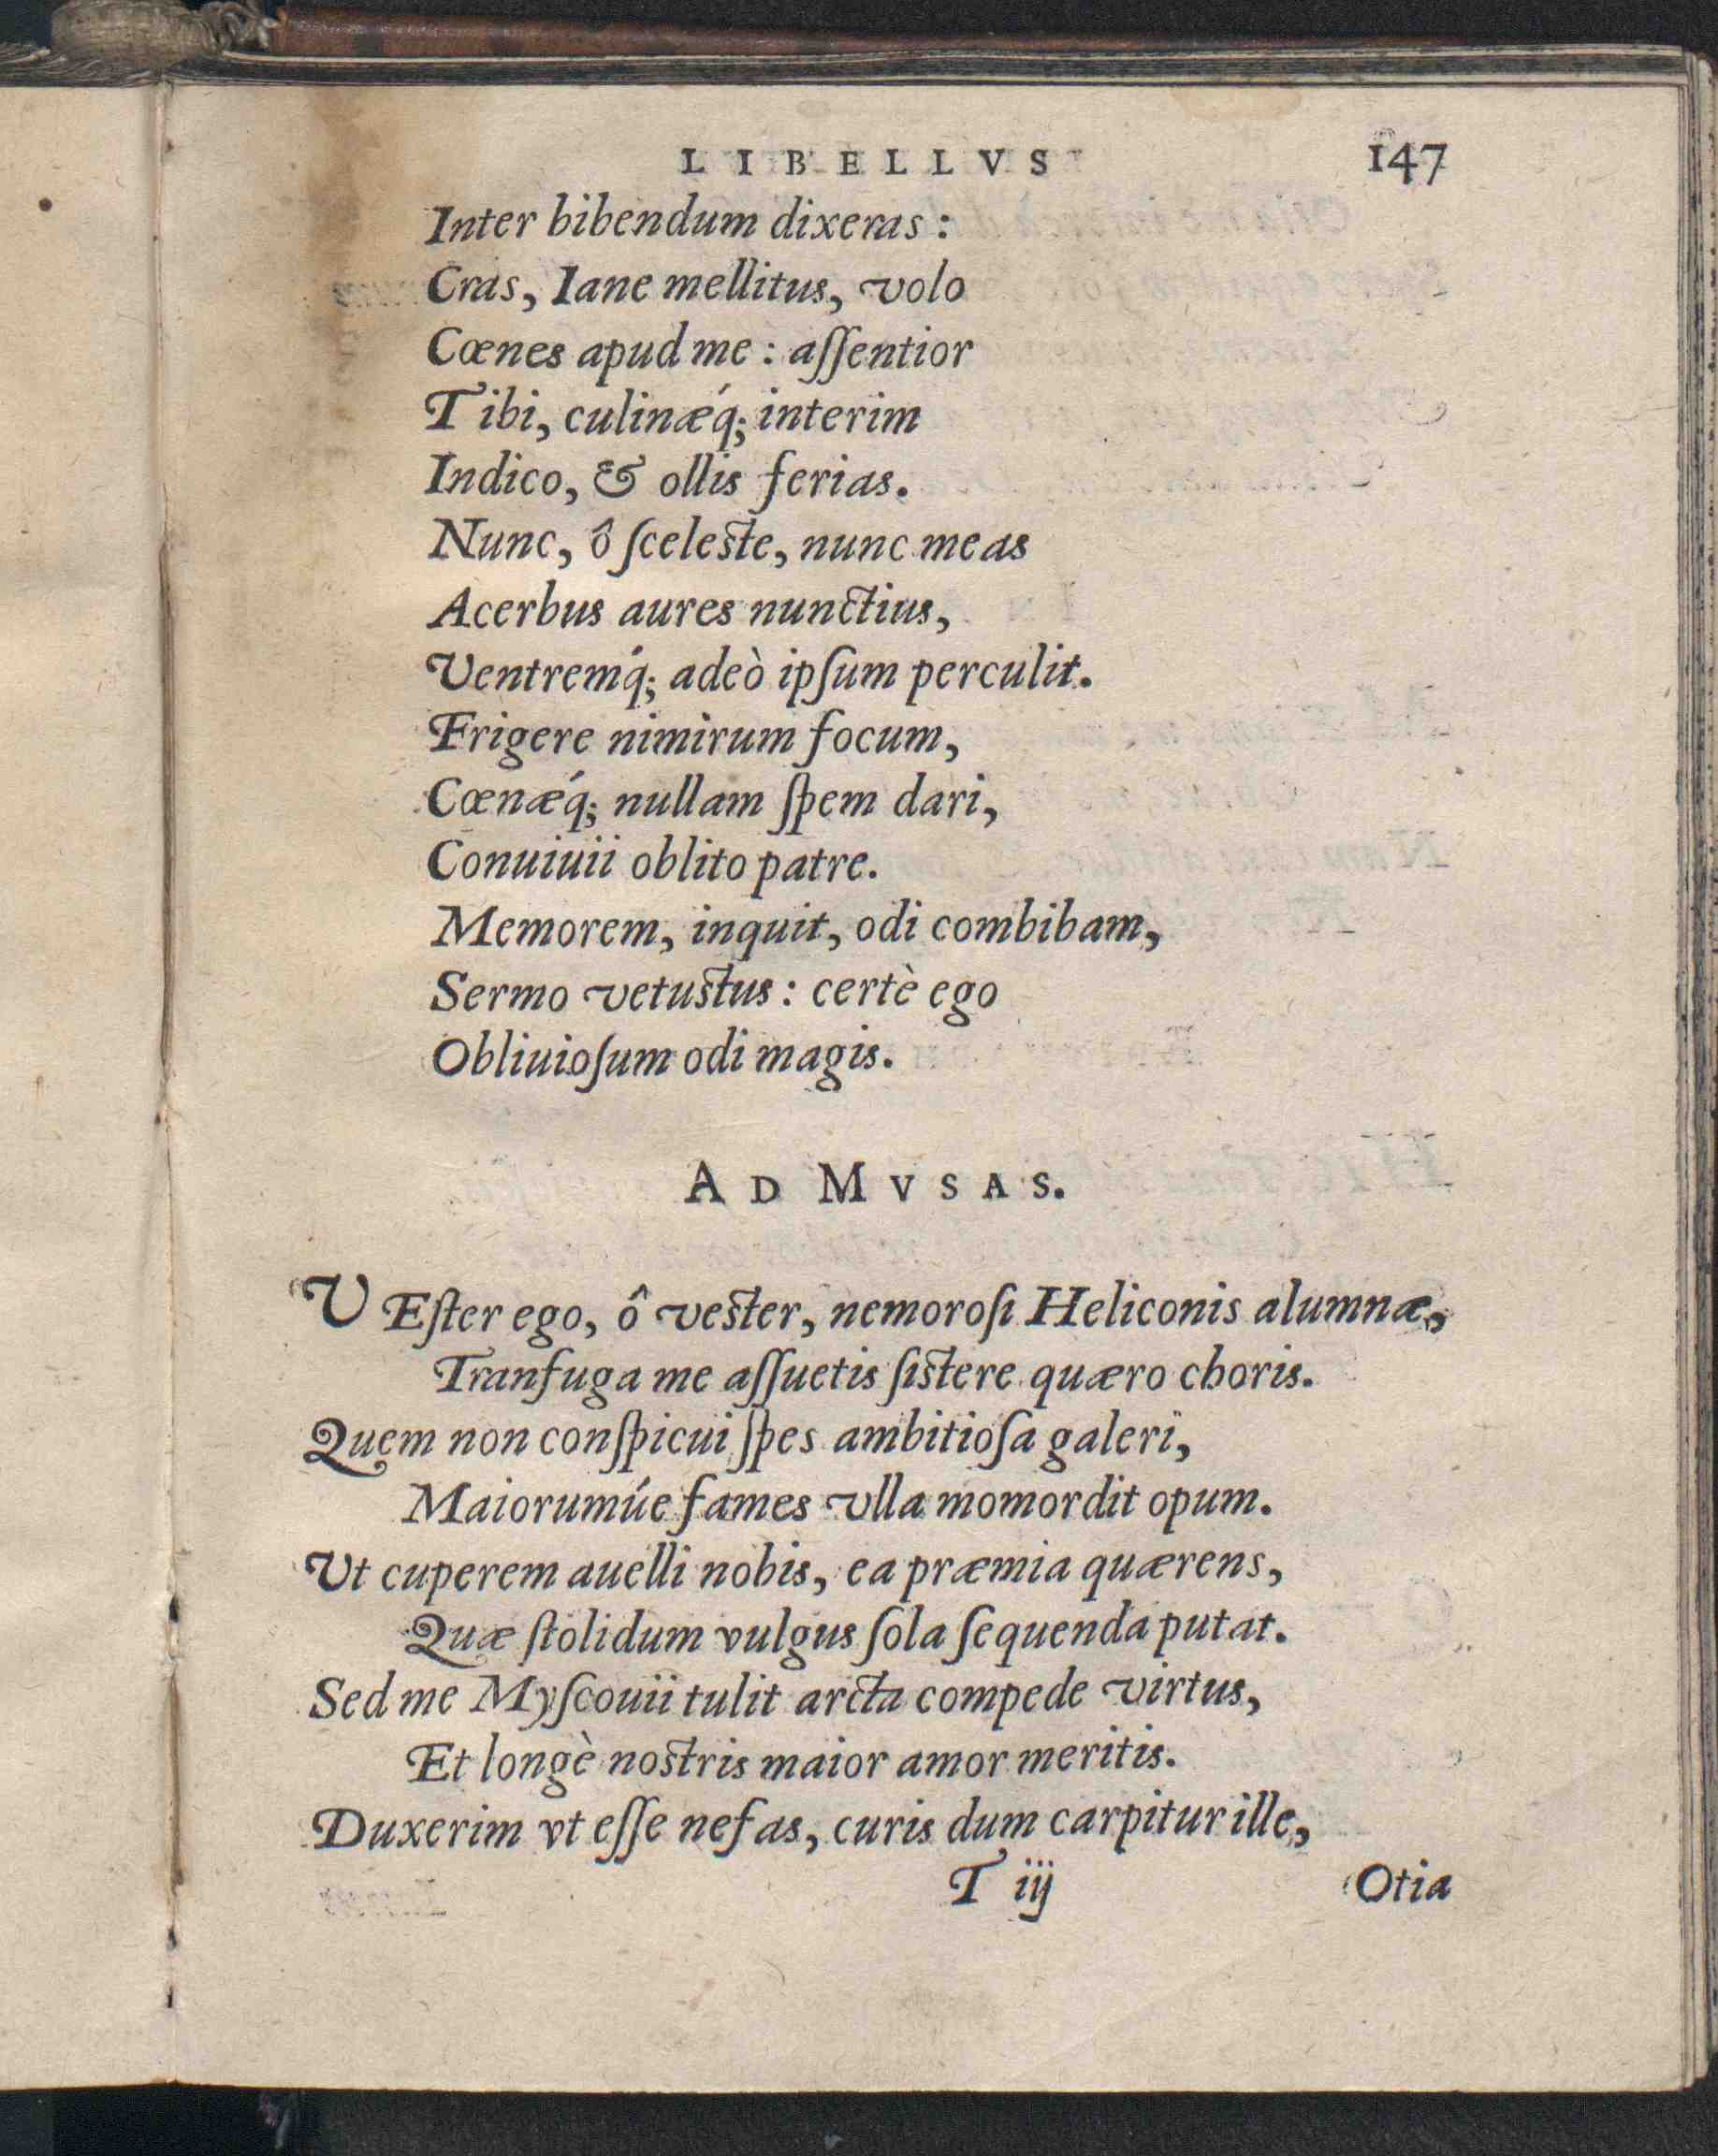 LIBELLVS 147
Inter bibendum dixeras:
Cras, Iane mellitus, volo
Cœnes apud me: aſſentior
Tibi, culinæq́; interim
Indico, & ollis ferias.
Nunc, ô ſceleste, nunc meas
Acerbus aures nunctius,
Ventremq́; adeò ipſum perculit.
Frigere nimirum focum,
Cœnæq́; nullam ſpem dari,
Conuiuii oblito patre.
Memorem, inquit, odi combibam,
Sermo vetustus: certè ego
Obliuioſum odi magis.
AD MVSAS.
VEſter ego, ô vester, nemoroſi Heliconis alumnæ,
Tranſuga me aſſuetis ſistere quæro choris.
Quem non conſpicui ſpes ambitioſa galeri,
Maiorumúe fames vlla momordit opum.
Vt cuperem auelli nobis, ea præmia quærens,
Quæ ſtolidum vulgus ſola ſequenda putat.
Sed me Myſcouii tulit arcta compede virtus,
Et longè nostris maior amor meritis.
Duxerim vt eſſe nefas, curis dum carpitur ille,
T iij Otia